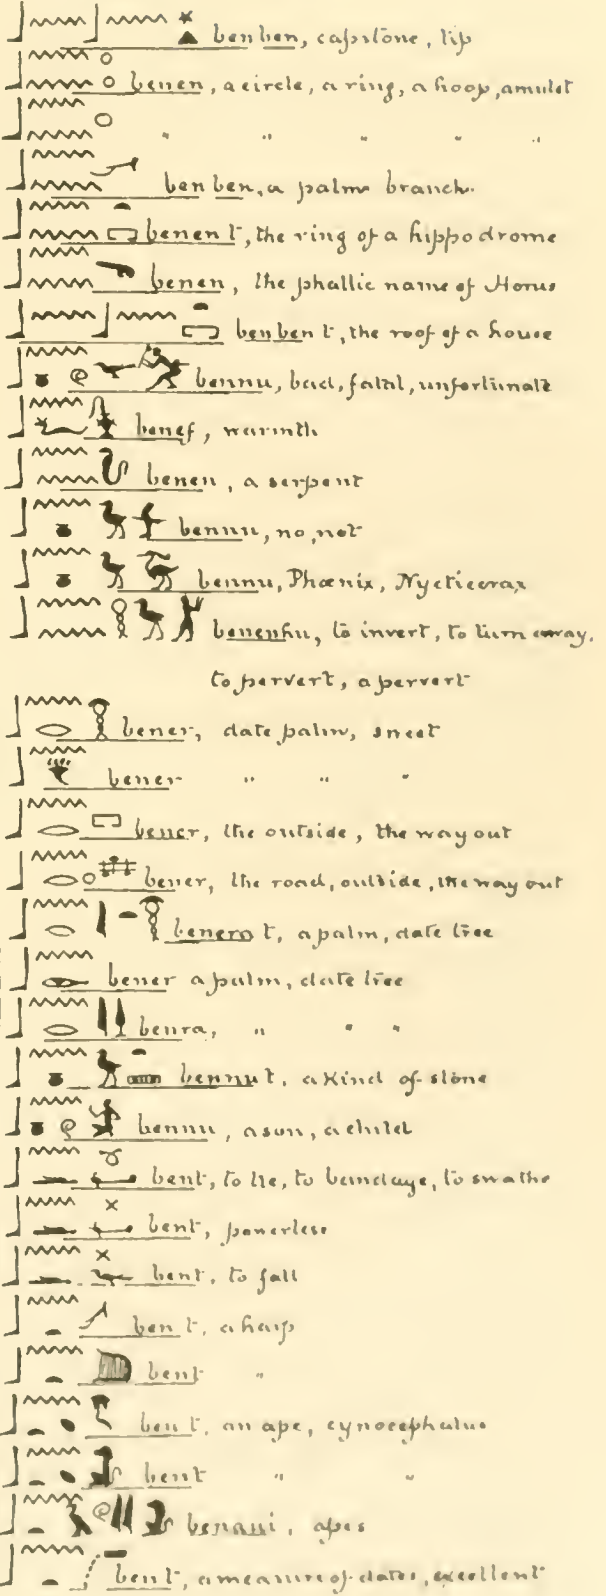 benben, capstone, tip
benen, a circle, a ring, a hoop, amulet
" " " " "
benben, a palm branch.
benen t, the ring of a hippodrome
benen, the phallic name of Horus
benben t, the roof of a house
bennu, bad, fatal, unfortunate
benef, warmth
benen, a serpent
bennu, no, not
bennu, Phœnix, Nycticorax
benenhu, to invert, to turn away,
to pervert, a pervert
bener, date palm, sweet
bener " " "
bener, the outside, the way out
bener, the road, outside, the way out
t, a palm, date tree
bener a palm, date tree
benra, " " "
bennu t, a kind of stone
bennu, a son, a child
bent, to tie, to bandage, to swathe
bent, powerless
bent, to fall
ben t, a harp
bent "
ben t, an ape, cynocephalus
bent " "
apes
ben t, a measure of dates, excellent